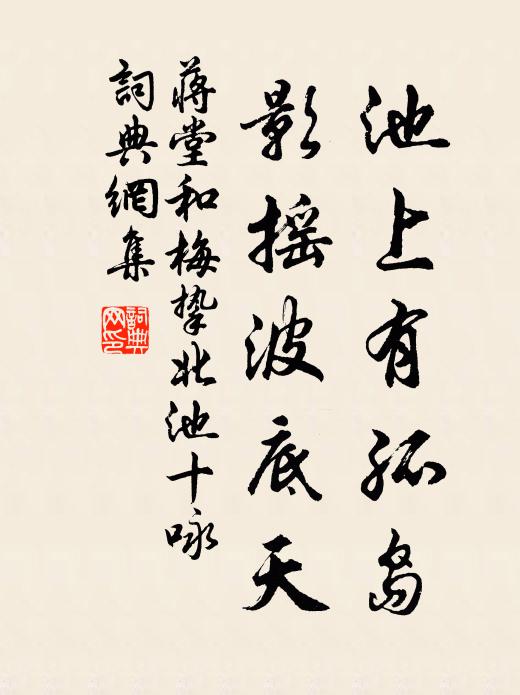 池上有孤島
影摇波底天
蔣堂和梅摯北池十咏
詞典網集
詞典网印